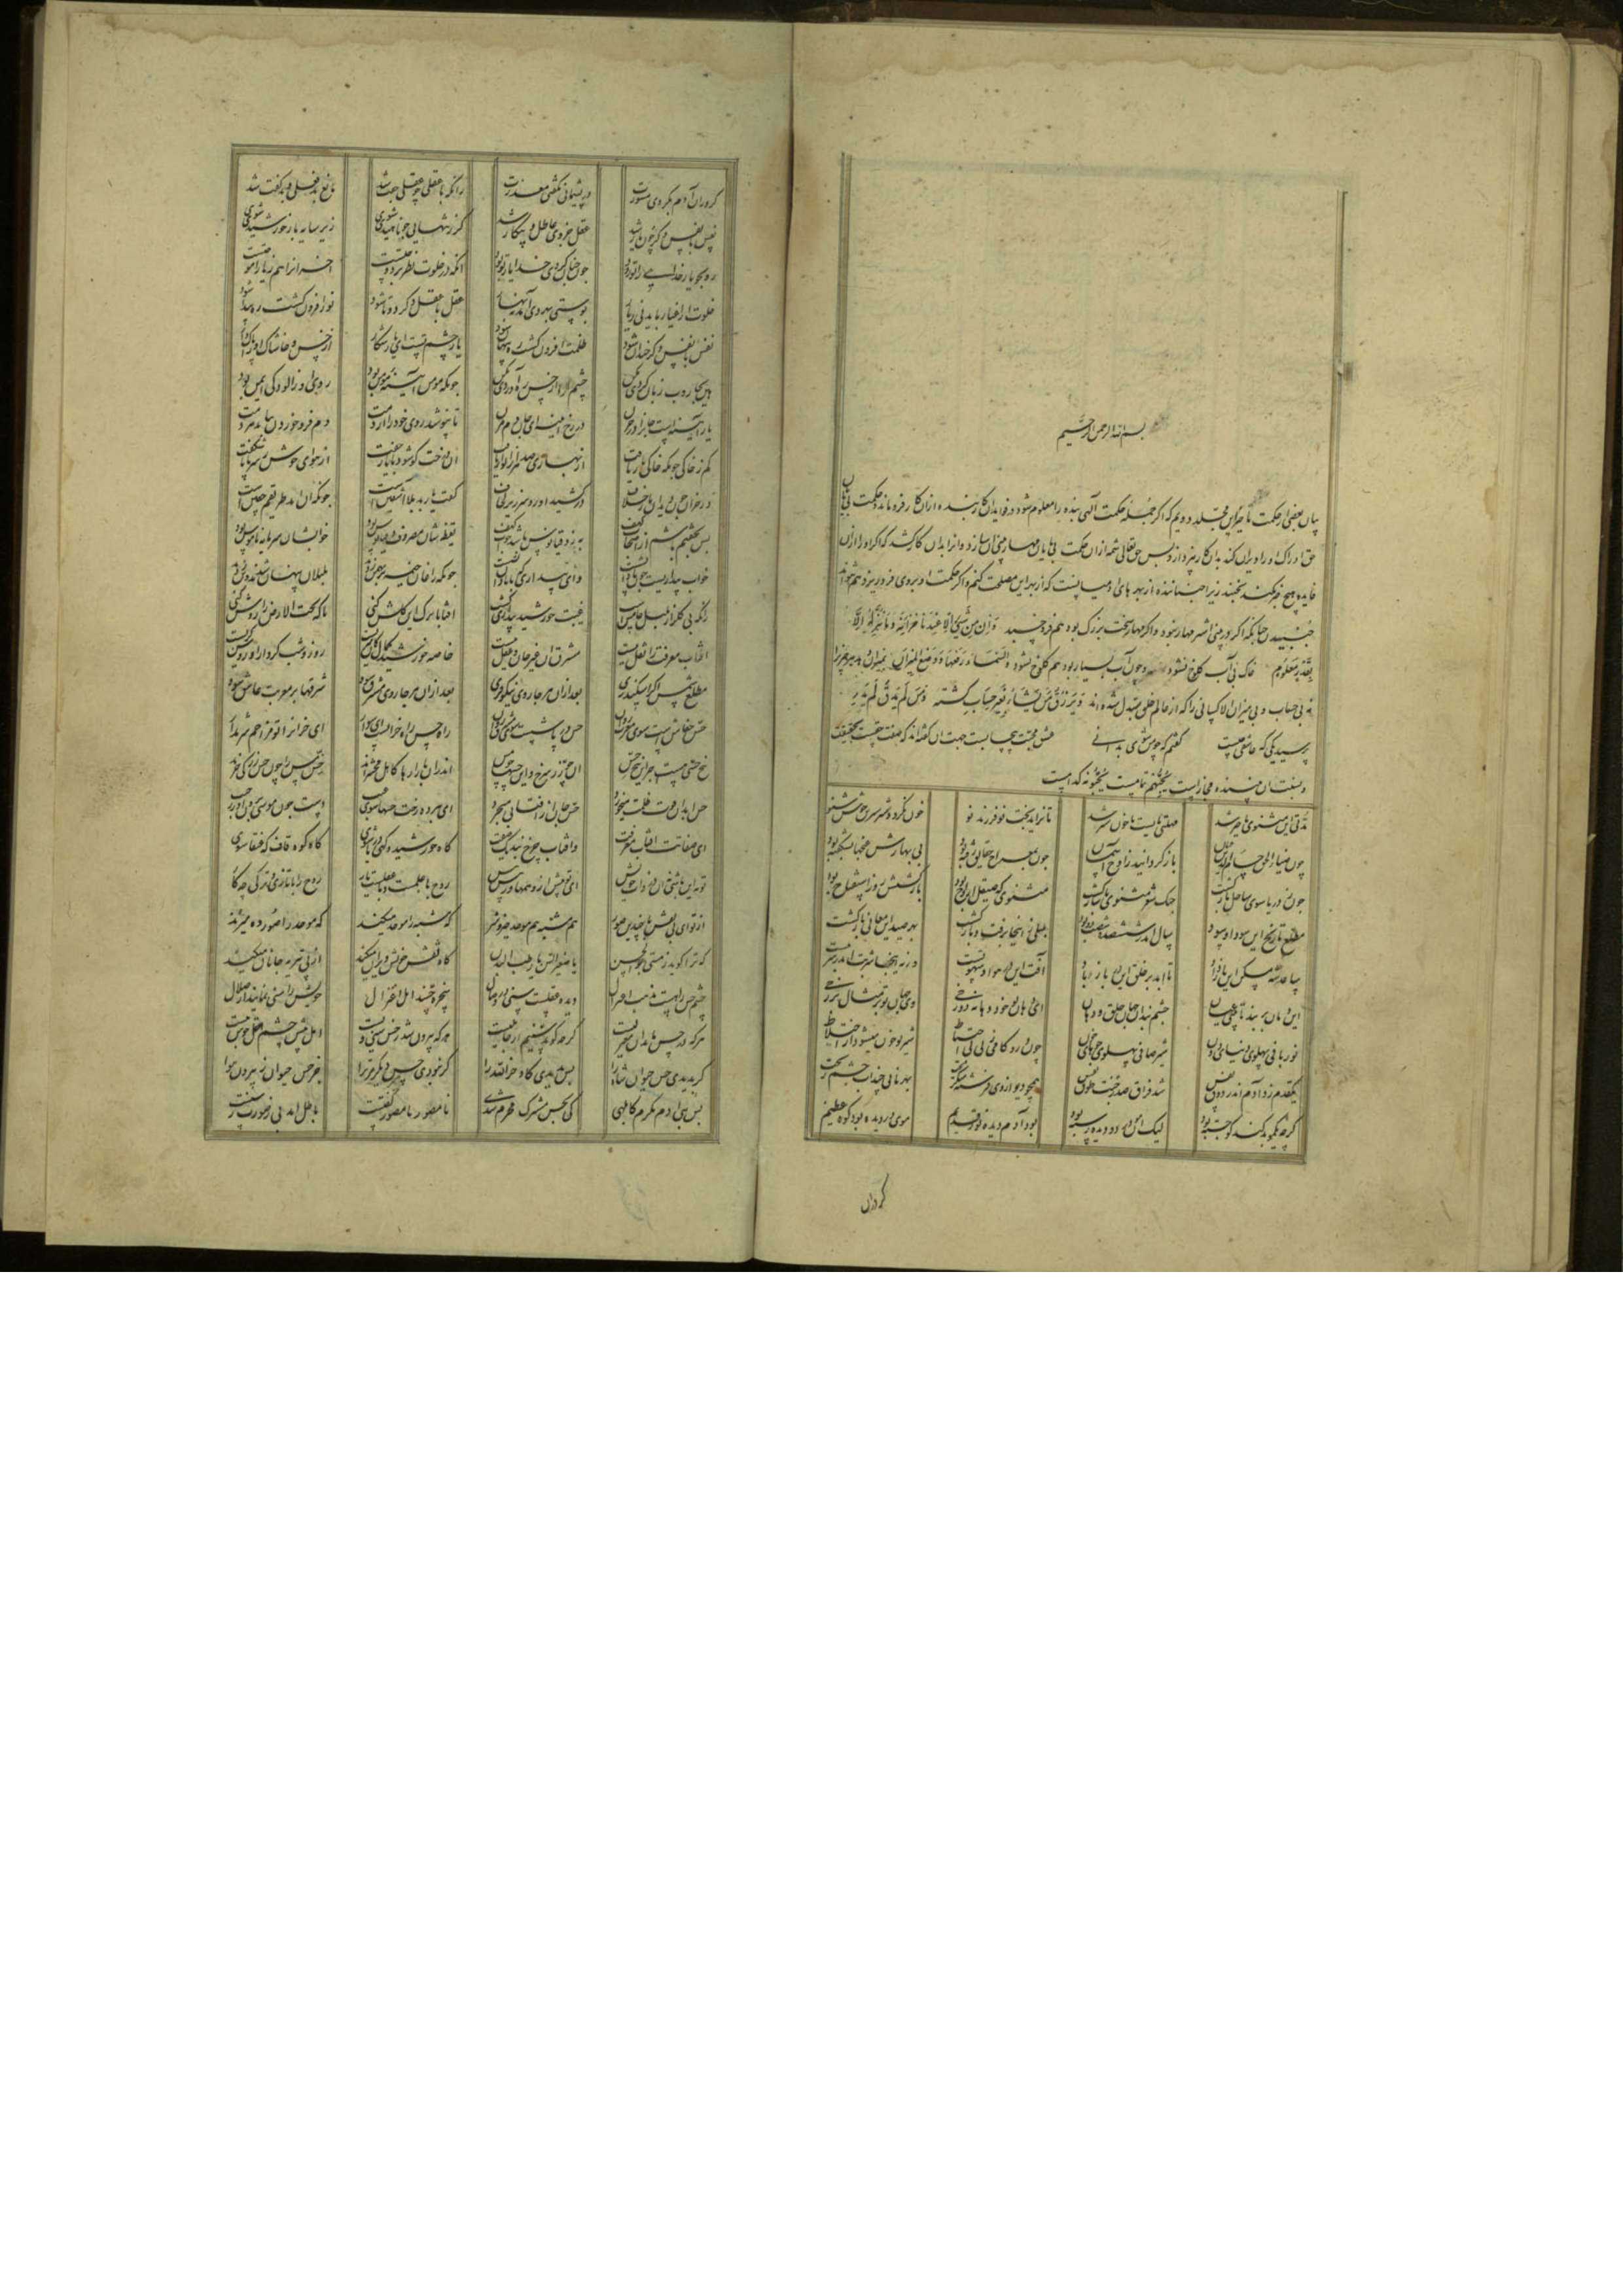 بسم الله الرحمن الرحیم
بیان بعضی از حکمت تاخیر این مجلد دویم که اگر جمله حکمت الهی بنده را معلوم شود در فواید ان کار بنده از ان کار فرو ماند و حکمت بی پایان
حق ادراک او را ویران کند بدان کار نپردازد پس حق تعالی شمه از ان حکمت بی پایان مهار بینی ان سازد و او را بدان کار کشد که اگر او را از ان
فایده هیچ خبر نکند نجنبد زیرا جنباننده از بهرهای ادمیانست که از بهر این مصلحت کنم و اگر حکمت ان بروی فرو ریزد هم نتواند
جنبیدن چنانکه اگر در بینی اشتر مهار نبود و اگر مهار سخت بزرگ بود هم فرو خسبد و ان من شیئ الا عندنا خزاینه و ما ننزله الا
بقدر معلوم خاک بی آب کلوخ نشود و چون آب بسیار بود هم کلوخ نشود و السماء رفعها و وضع المیزان بمیزان دهد هر چیز را
نه بی حساب و بی میزان الا کسانی را که از عالم خلق مبدل شده اند و یرزق من یشاء بغیر حساب گشته و من لم یذق لم یدر
پرسید یکی که عاشقی چیست گفتم که چو من شوی بدانی عشق محبت بیحسابست جهت ان گفته اند که صفت حقست بحقیقت
و نسبت ان ببنده مجازاست یحبهم تمامست یحبونه کدامست
مدتی این مثنوی تاخیر شد مهلتی بایست تا خون شیر شد تا نزاید بخت نو فرزند نو خون نگردد شیر شیرین خوش شنو
چون ضیاء الحق حسام الدین عنان باز گردانید ز اوج آسمان چون بمعراج حقایق رفته بود بی بهارش غنچها نشکفته بود
چون ز دریا سوی ساحل بازگشت چنگ شعر مثنوی با ساز گشت مثنوی که صیقل ارواح بود بازگشتش روز استفتاح بود
مطلع تاریخ این سودا و سود سال اندر ششصد و شصت و دو بود بلبلی ز اینجا برفت و بازگشت بهر صید این معانی بازگشت
ساعد شه مسکن این باز باد تا ابد بر خلق این در باز باد آفت این در هوا و شهوتست ورنه اینجا شربت اندر شربتست
این دهان بربند تا بینی عیان چشم بند آن جهان حلق و دهان ای دهان تو خود دهانه دوزخی وی جهان تو بر مثال برزخی
نور باقی پهلوی دنیای دون شیر صافی پهلوی جوهای خون چون درو گامی زنی بی احتیاط شیر تو خون میشود از اختلاط
یکقدم زد آدم اندر ذوق نفس شد فراق صدر جنت طوق نفس همچو دیو از وی فرشته میگریخت بهر نانی چند آب چشم ریخت
گرچه یک مو بد گنه کو جسته بود لیک آن مو در دو دیده رسته بود بود آدم دیده نور قدیم موی در دیده بود کوه عظیم
گر دران
گر دران آدم بکردی مشورت در پشیمانی نگفتی معذرت زانکه با عقلی چو عقلی جفت شد مانع بد فعلی و بد گفت شد
نفس با نفس دگر چون یار شد عقل جزوی عاطل و بیکار شد گر ز تنهایی چو ناهیدی شوی زیر سایه یار خورشیدی شوی
رو بجو یار خدایی را تو زود چون چنان کردی خدا یار تو بود آنکه در خلوت نظر بر دوختست آخر آنرا هم ز یار آموختست
خلوت از اغیار باید نی ز یار پوستین بهر دی آمد نه بهار عقل با عقل دگر دو تا شود نور افزون گشت ره پیدا شود
نفس با نفس دگر خندان شود ظلمت افزون گشت ره پنهان شود یار چشم تست ای مرد شکار از خس و خاشاک او را پاک دار
هین بجاروب زبان گردی مکن چشم را از خس ره آوردی مکن چونکه مومن آینه مومن بود روی او ز آلودگی ایمن بود
یار آینه است جانرا در حزن در رخ آینه ای جان دم مزن تا نپوشد روی خود را از دمت دم فرو خوردن بباید هر دمت
کم ز خاکی چونکه خاکی یار یافت از بهاری صد هزار انوار یافت آن درختی کو شود با یار جفت از هوای خوش ز سر تا پا شکفت
در خزان چون دید او یار خلاف در کشید او رو و سر زیر لحاف گفت یار بد بلا آشفتن است چونکه آن آمد طریقم خفتن است
پس بخسپم باشم از اصحاب کهف به ز دقیانوس باشد خواب کهف یقظه شان مصروف دقیانوس بود خوابشان سرمایه ناموس بود
خواب بیداریست چون با دانش است وای بیداری که با نادان نشست چونکه زاغان خیمه بر بهمن زدند بلبلان پنهان شدند و تن زدند
زانکه بی گلزار بلبل خامش است غیبت خورشید بیداری کش است آفتابا ترک این گلشن کنی تا که تحت الارض را روشن کنی
آفتاب معرفت را نقل نیست مشرق آن غیر جان و عقل نیست خاصه خورشید کمالی کان سریست روز و شب کردار او روشنگریست
مطلع شمس آی اگر اسکندری بعد از ان هر جا روی نیکو فری بعد از ان هر جا روی مشرق شود شرقها بر مغربت عاشق شود
حس خفاشت سوی مغرب دوان حس در پاشت سوی مشرق روان راه حس راه خرانست ای سوار ای خرانرا تو مزاحم شرم دار
پنج حسی هست جز این پنج حس آن چو زر سرخ و این حسها چو مس اندران بازار کاهل محشرند حس مس را چون حس زر کی خرند
حس ابدان قوت ظلمت میخورد حس جان از آفتابی میچرد ای ببرده رخت حسها سوی غیب دست چون موسی برون آور ز جیب
ای صفاتت آفتاب معرفت و آفتاب چرخ بند یک صفت گاه خورشیدی و گه دریا شوی گاه کوه قاف و گه عنقا شوی
تو نه این باشی نه آن در ذات خویش ای فزون از وهمها وز بیش بیش روح با علمست و با عقلست یار روح را با تازی و ترکی چه کار
از تو ای بی نقش با چندین صور هم مشبه هم موحد خیره سر گه مشبه را موحد میکند گه موحد را صور ره میزند
گه ترا گوید ز مستی بو الحسن یا صغیر السن یا رطب البدن گاه نقش خویش ویران میکند از پی تنزیه جانان میکند
چشم حس را هست مذهب اعتزال دیده عقلست سنی در وصال سخره حسند اهل اعتزال خویش را سنی نمایند از ضلال
هر که در حس ماند آن معتزلیست گرچه گوید سنیم از جاهلیست هر که بیرون شد ز حس سنی ویست اهل بینش چشم عقل خوش پیست
گر بدیدی حس حیوان شاه را پس بدیدی گاو و خر الله را گر نبودی حس دیگر مر ترا جز حس حیوان ز بیرون هوا
پس بنی آدم مکرم کی بدی کی بحس مشترک محرم شدی نا مصور یا مصور گفتنت باطل آمد بی ز صورت رستنت